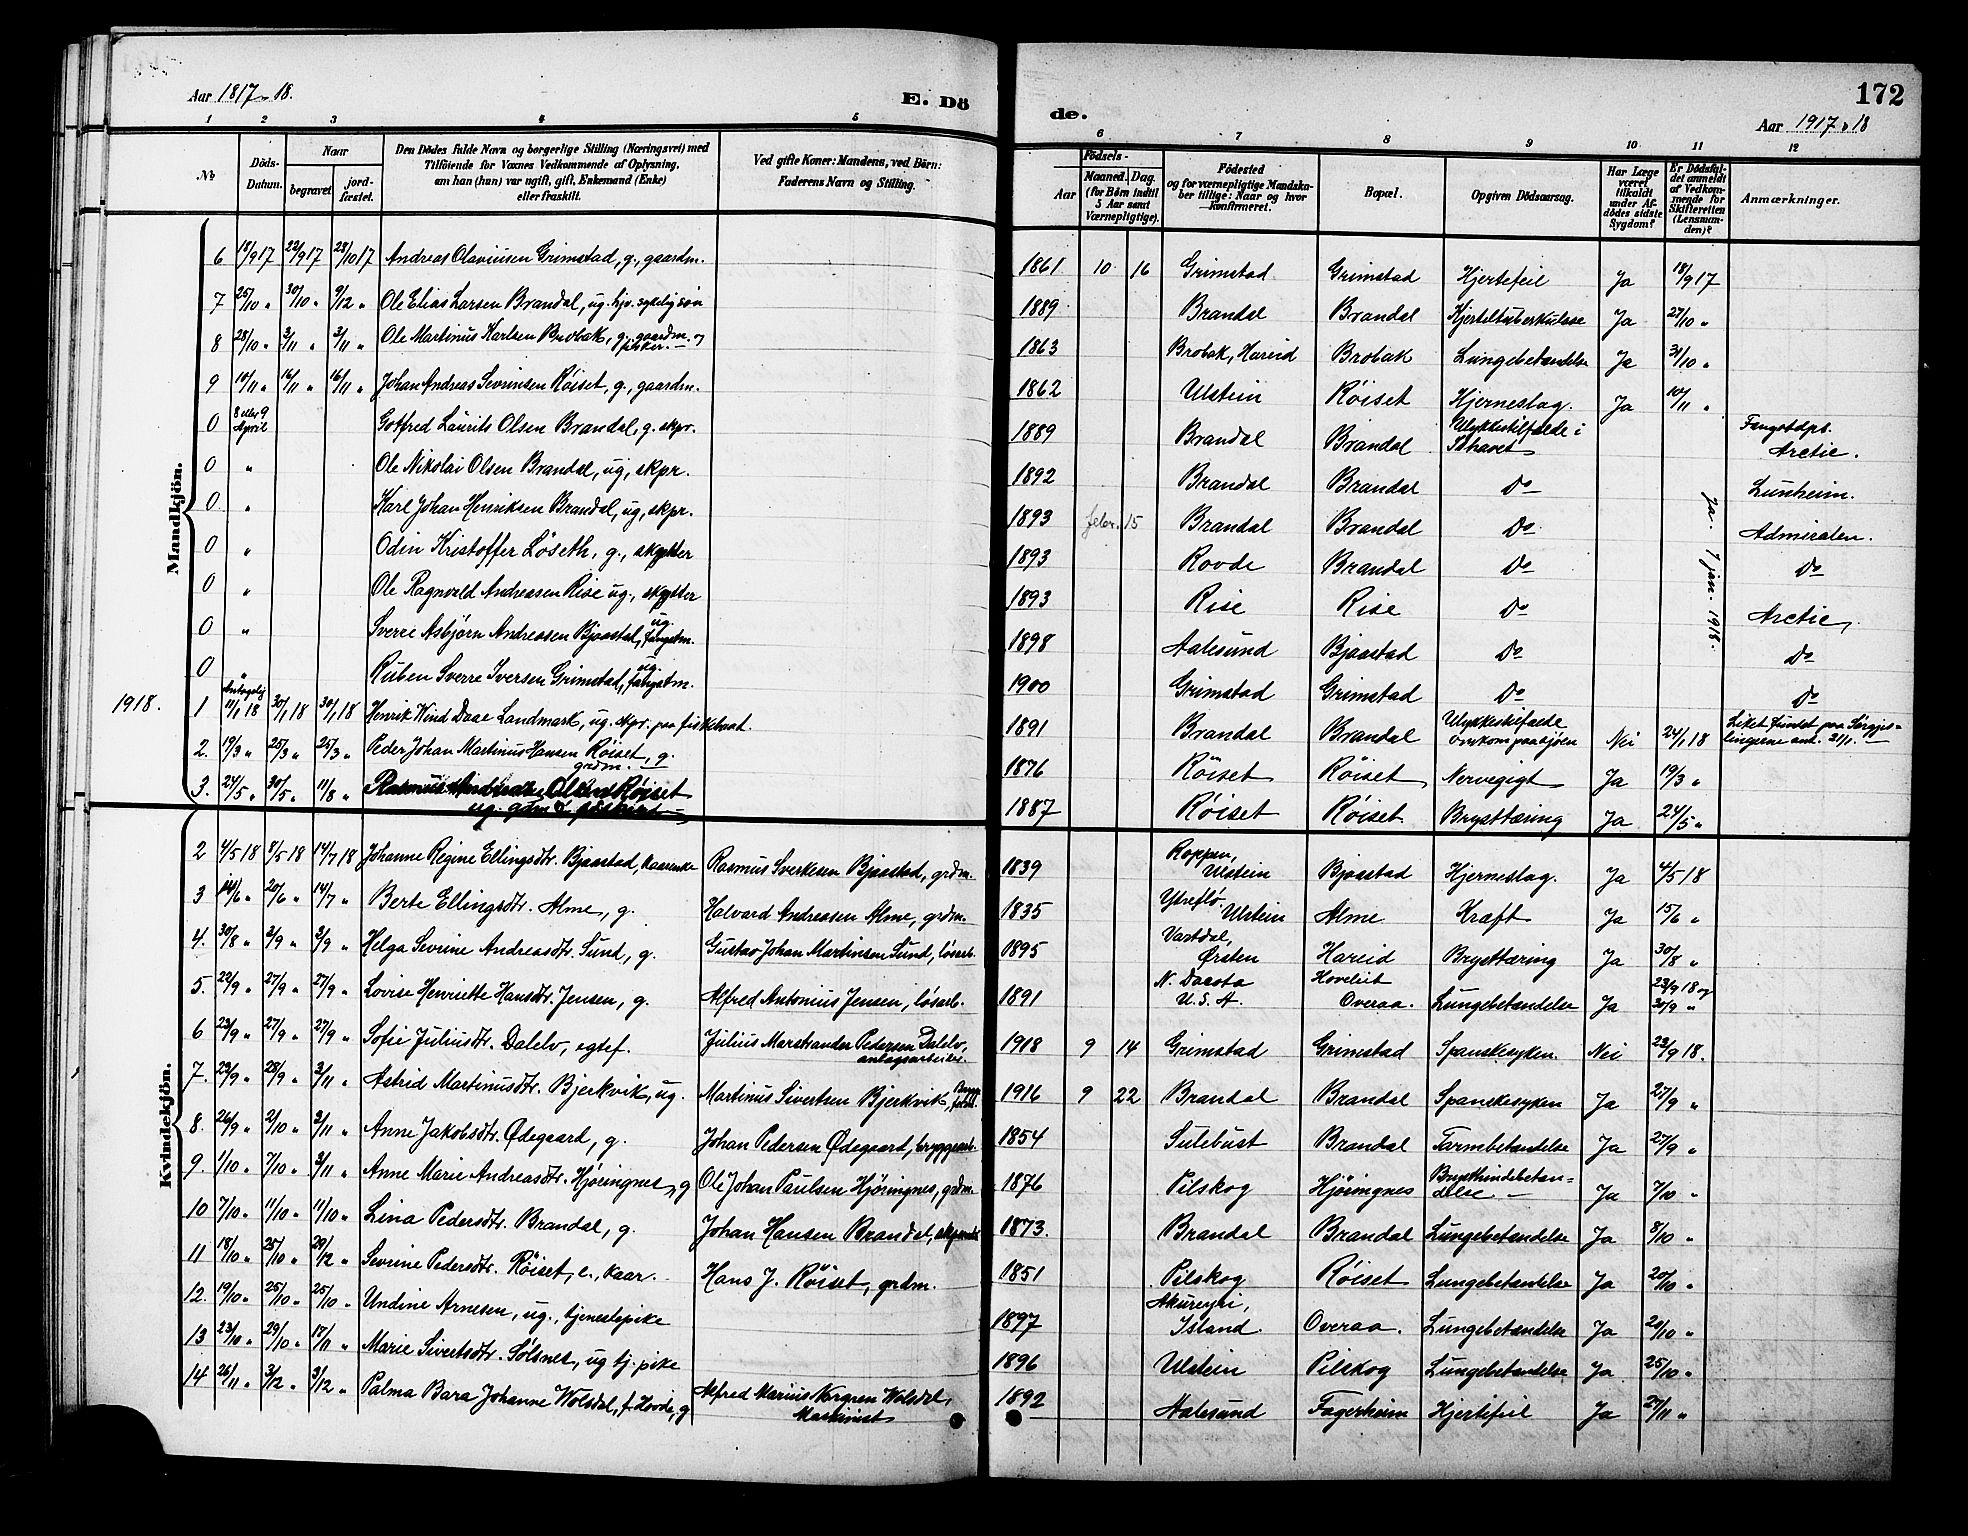 Aar 1817-18.
E. Dö
de.
172
Aar 1917-18
1 2 3 4 5
6 7 8 9 10 11 12
No
Döds-Datum.
Naar
begravet
jord-fæstet.
Den Dödes fulde Navn og borgerlige Stilling (Næringsvei) med
Tilföiende for Voxnes Vedkommende af Oplysning,
om han (hun) var ugift, gift, Enkemand (Enke)
eller fraskilt.
Ved gifte Koner: Mandens, ved Börn:
Faderens Navn og Stilling.
Födsels-
Aar
Maaned. Dag.
(for Börn indtil
5 Aar samt
Værnepligtige).
Födested
og for værnepligtige Mandska-
ber tillige: Naar og hvor
konfirmeret.
Bopæl.
Opgiven Dödsaarsag.
Har Læge
været
tilkaldt
under Af-
dödes sidste
Sygdom?
Er Dödsfal-
det anmeldt
af Vedkom-
mende for
Skifteretten
(Lensman-
den)?
Anmærkninger.
Mandkjön.
6 18/9 17 22/9 17 28/10 17 Andreas Olaviusen Grimstad, g., gaardm. 1861 10 16 Grimstad Grimstad Hjertefeil Ja 18/9 17
7 25/10 " 30/10 " 9/12 " Ole Elias Larsen Brandal, ug. hjv. sykelig søn 1889 Brandal Brandal Kjerteltuberkulose Ja 27/10 "
8 28/10 " 3/11 " 3/11 " Ole Martinus Karlsen Brobak, g., gaardm. og fisker. 1863 Brobak, Hareid Brobak Lungebetændelse Ja 31/10 "
9 10/11 " 16/11 " 16/11 " Johan Andreas Sevrinsen Røiset, g., gaardm. 1862 Ulstein Røiset Hjerneslag. Ja 10/11 "
0 8 eller 9 April Gotfred Laurits Olsen Brandal, g. skpr. 1889 Brandal Brandal Ulykkestilfælde i Ishavet Fangstdps. Arctic.
0 " Ole Nikolai Olsen Brandal, ug, skpr. 1892 Brandal Brandal Do Lunheim.
0 " Karl Johan Henriksen Brandal, ug, skpr. 1893 febr. 15 Brandal Brandal Do Admiralen.
0 " Odin Kristoffer Løseth, g., skytter 1893 Rovde Brandal Do Do
0 " Ole Ragnvald Andreasen Rise ug., skytter 1893 Rise Rise Do Arctic,
0 " Sverre Asbjørn Andreasen Bjaastad, ug. fangstm. 1898 Aalesund Bjaastad Do Do
0 " Ruben Sverre Iversen Grimstad, ug. fangstm. 1900 Grimstad Grimstad Do Do
Ja. 7 jan. 1918.
1918.
1 Antagelig 11/1 18 30/1 18 30/1 18 Henrik Wind Daae Landmark, ug. skpr. paa fiskebaat. 1891 Brandal Brandal Ulykkestilfælde omkom paa sjøen Nei 24/1 18 Liket fundet paa
2. 19/3 " 25/3 " 25/3 " Peder Johan Martinus Hansen Røiset, g. grdm. 1876 Röiset Röiset Nervegigt Ja 19/3 "
3. 24/5 " 30/5 " 11/8 " Rasmus Olsen Røiset ug. 1887 Røiset Røiset Brysttæring Ja 24/5 "
Kvindekjön.
2 4/5 18 8/5 18 14/7 18 Johanne Regine Ellingsdtr. Bjaastad, kaarenke Rasmus Sverkesen Bjaastad, grdm. 1839 Roppen, Ulstein Bjaastad Hjerneslag. Ja 4/5 18
3 14/6 " 20/6 " 14/7 " Berte Ellingsdtr. Alme, g. Halvard Andreasen Alme, grdm. 1835 Ytreflø, Ulstein Alme Kræft Ja 15/6 "
4. 30/8 " 3/9 " 3/9 " Helga Sevrine Andreasdtr Sund, g. Gustav Johan Martinsen Sund, løsarb. 1895 Vartdal, Ørsten Hareid Brysttæring Ja 30/8 "
5. 22/9 " 27/9 " 27/9 " Lovise Henriette Hansdtr. Jensen, g. Alfred Antonius Jensen, løsarb. 1891 N. Dacota U.S.A. Hoveliit Overaa. Lungebetændelse Ja 23/9 18 og 30/9 "
6 23/9 " 27/9 " 27/9 " Sofie Juliusdtr. Dalelv, egtef. Julius Marstrander Pedersen Dalelv, anlagsarbeider. 1918 9 14 Grimstad Grimstad Spanskesyken Nei 23/9 18.
7. 22/9 " 28/9 " 3/11 " Astrid Martinusdtr. Bjerkvik, ug. Martinus Sivertsen Bjerkvik, 1916 9 22 Brandal Brandal Spanskesyken Ja 27/9 "
8. 26/9 " 2/10 " 3/11 " Anne Jakobsdtr. Ødegaard, g. Johan Pedersen Ødegaard, bryggearb. 1854 Sulebust Brandal Tarmbetændelse Ja 27/9 "
9. 1/10 " 7/10 " 3/11 " Anne Marie Andreasdtr. Hjøringnes, g Ole Johan Paulsen Hjøringnes, grdm. 1876 Pilskog Hjøringnes Brysthindebetæn-delse Ja 7/10 "
10 7/10 " 11/10 " 11/10 " Lina Pedersdtr. Brandal, g. Johan Hansen Brandal, 1873. Brandal Brandal Lungebetændelse Ja 8/10 "
11 18/10 " 25/10 " 29/12 " Sevrine Pedersdtr. Röiset, e., kaar. Hans J. Röiset, grdm. 1851 Pilskog Røiset Lungebetændelse Ja 20/10 "
12. 19/10 " 25/10 " 25/10 " Undine Arnesen, ug., tjenestepike 1897 Akureyri, Island. Overaa. Lungebetændelse Ja 20/10 "
13 23/10 " 29/10 " 17/11 " Marie Sivertsdtr. Sølsnes, ug tj. pike 1896 Ulstein Pilskog Lungebetændelse Ja 25/10 "
14 26/11 " 3/12 " 3/12 " Palma Bara Johanne Wolsdal, f. Hovde, g Alfred Marius Norgren Wolsdal, Maskinist 1892 Aalesund Fagerheim Hjertefeil Ja 27/11 "